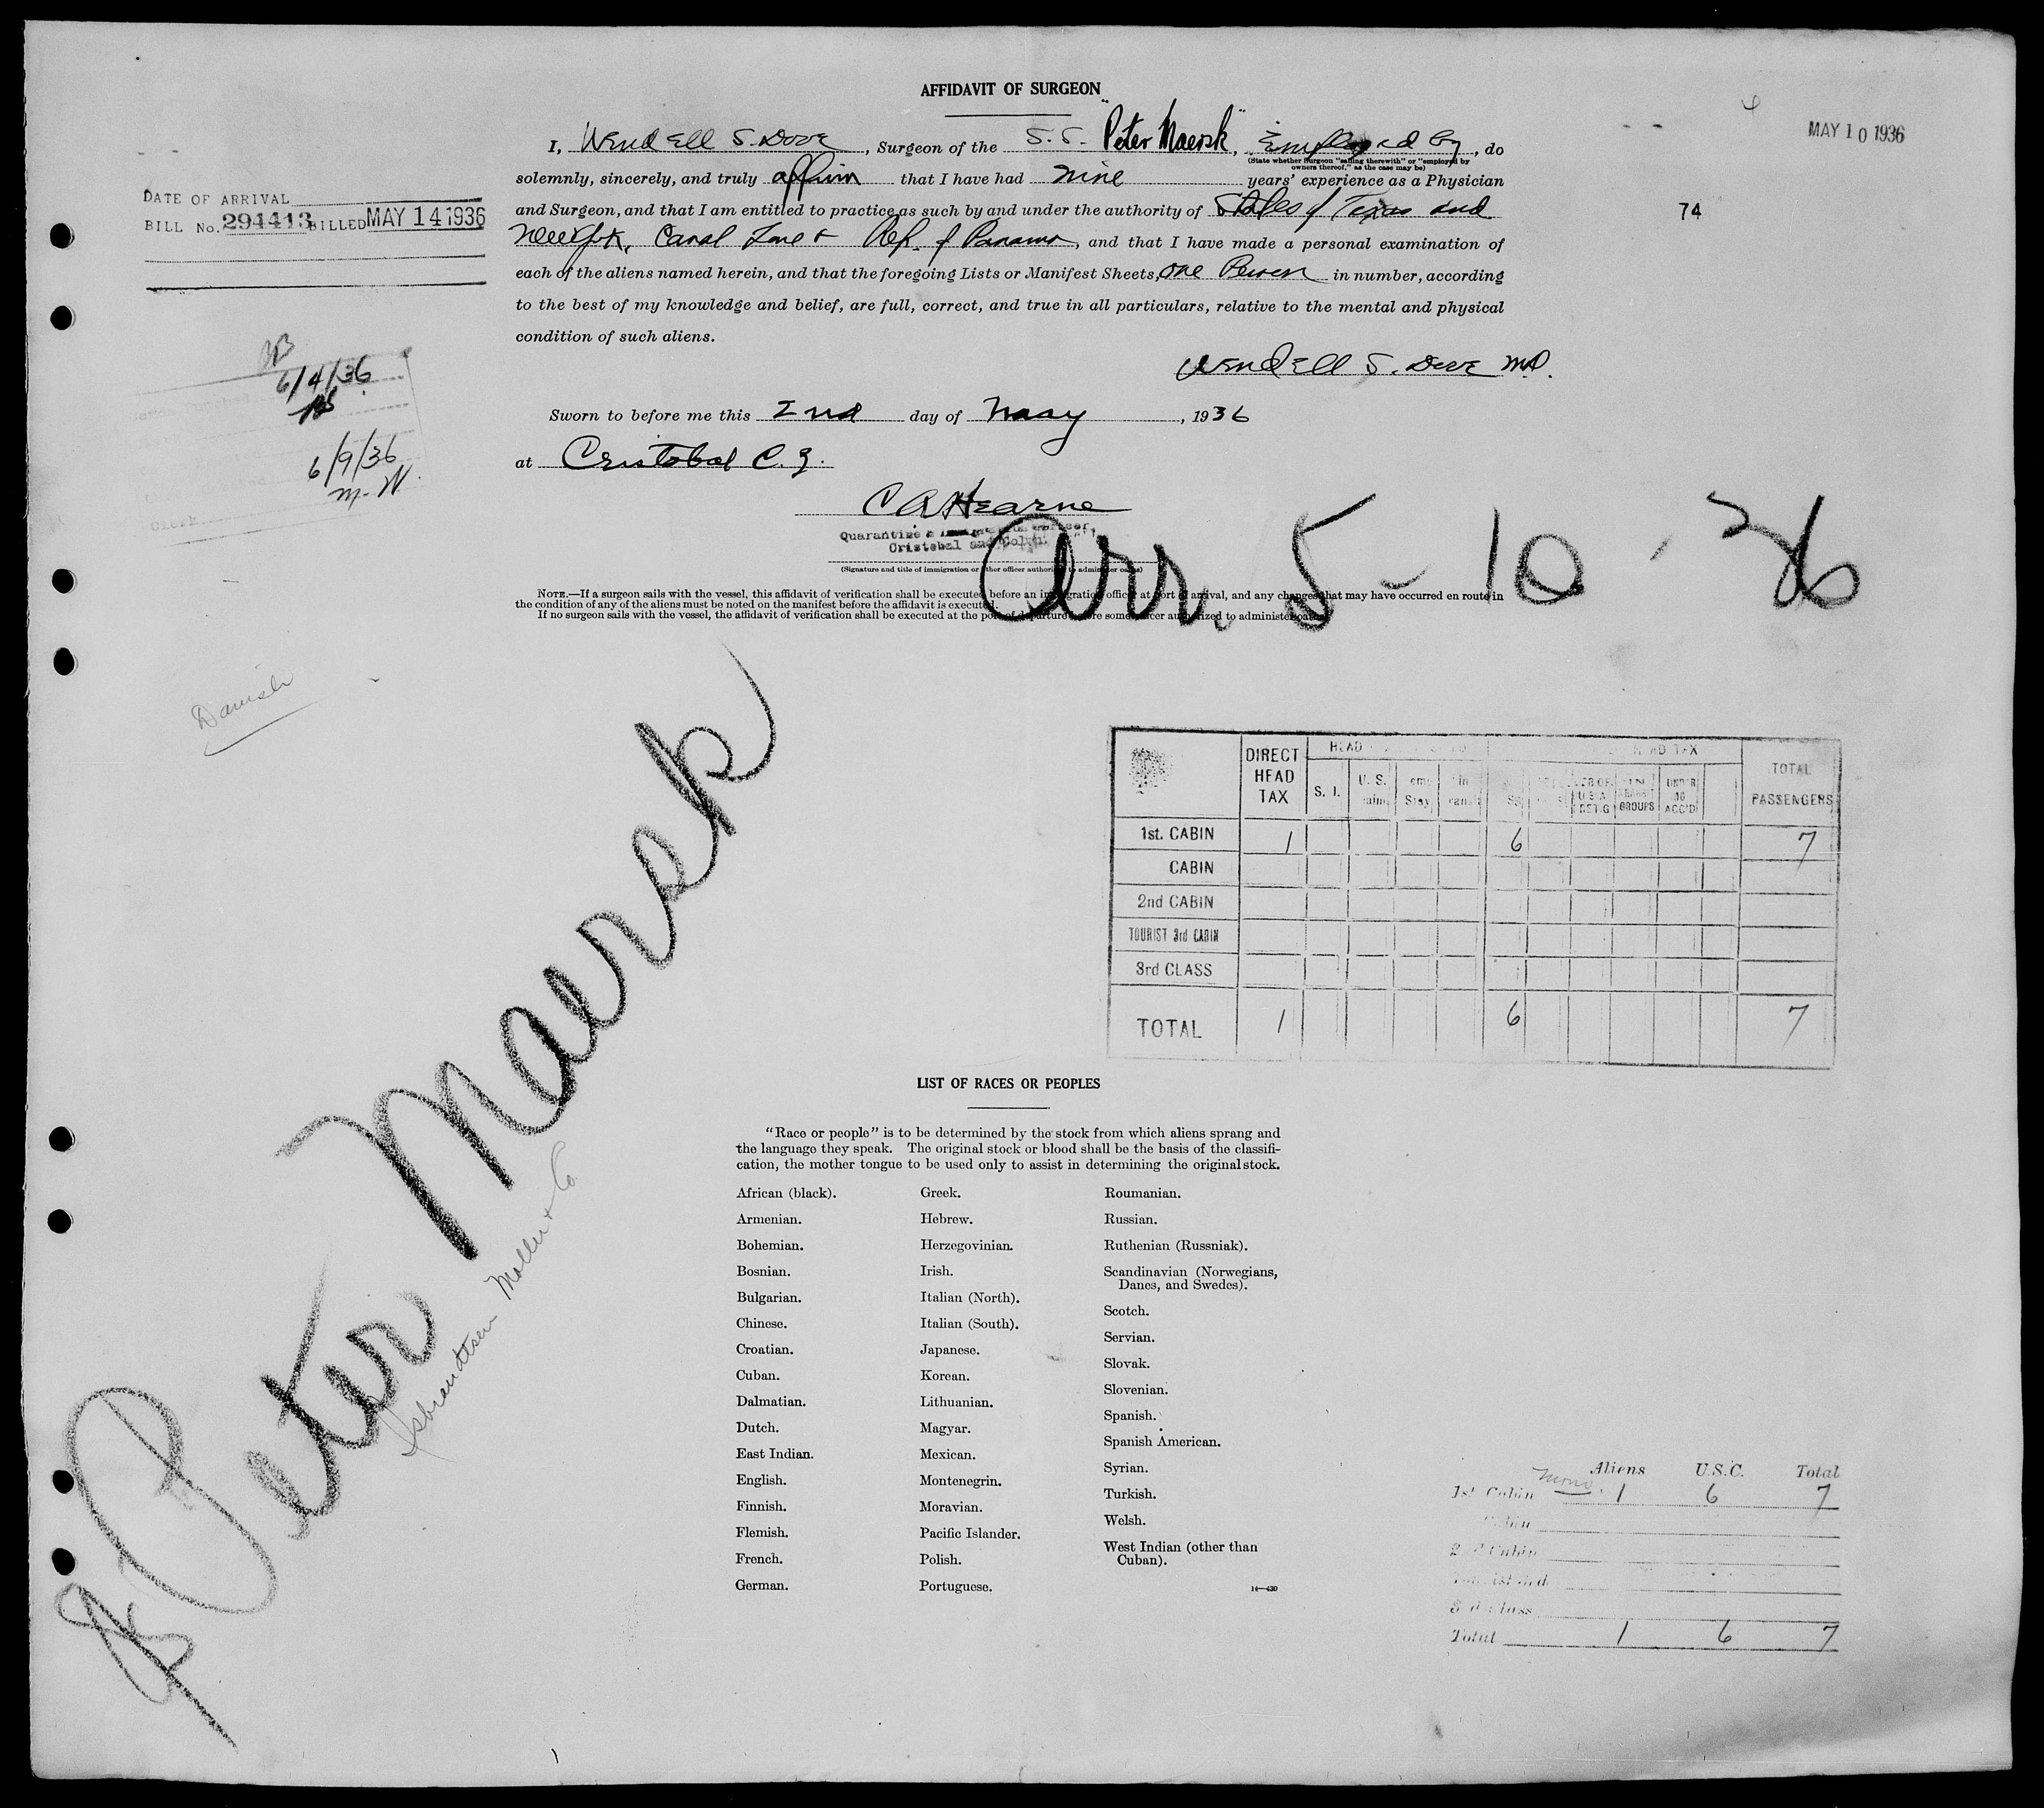 AFFIDAVIT OF SURGEON
MAY 10 1936
I, Wendell S. Dove, Surgeon of the S.S. "Peter Maersk", Employed by, do
(State whether Surgeon "sailing therewith" or "employed by
owners thereof," as the case may be)
solemnly, sincerely, and truly affirm that I have had nine years' experience as a Physician
and Surgeon, and that I am entitled to practice as such by and under the authority of States of Texas and
New York, Canal Zone & Rep. of Panama, and that I have made a personal examination of
each of the aliens named herein, and that the foregoing Lists or Manifest Sheets, one Person in number, according
to the best of my knowledge and belief, are full, correct, and true in all particulars, relative to the mental and physical
condition of such aliens.
74
DATE OF ARRIVAL
BILL No. 294413 BILLED MAY 14 1936
6/4/36
6/9/36
m.W.
Clerk
Wendell S. Dove M.D.
Sworn to before me this 2nd day of May, 1936
at Cristobal C.Z.
C A Hearne
Quarantine & Officer,
Cristobal and Colon
(Signature and title of immigration or other officer authorized to administer oaths)
Arr. 5-10-36
NOTE.—If a surgeon sails with the vessel, this affidavit of verification shall be executed before an immigration officer at port of arrival, and any changes that may have occurred en route in
the condition of any of the aliens must be noted on the manifest before the affidavit is executed.
If no surgeon sails with the vessel, the affidavit of verification shall be executed at the port of departure before some officer authorized to administer oaths.
Danish
Peter Maersk
Isbrandtsen Moller & Co
DIRECT HEAD TAX
HEAD
HEAD TAX
S. I.
U. S.
GROUPS
TOTAL PASSENGERS
1st. CABIN 1 6 7
CABIN
2nd CABIN
TOURIST 3rd CABIN
3rd CLASS
TOTAL 1 6 7
LIST OF RACES OR PEOPLES
"Race or people" is to be determined by the stock from which aliens sprang and
the language they speak. The original stock or blood shall be the basis of the classifi-
cation, the mother tongue to be used only to assist in determining the original stock.
African (black).
Armenian.
Bohemian.
Bosnian.
Bulgarian.
Chinese.
Croatian.
Cuban.
Dalmatian.
Dutch.
East Indian.
English.
Finnish.
Flemish.
French.
German.
Greek.
Hebrew.
Herzegovinian.
Irish.
Italian (North).
Italian (South).
Japanese.
Korean.
Lithuanian.
Magyar.
Mexican.
Montenegrin.
Moravian.
Pacific Islander.
Polish.
Portuguese.
Roumanian.
Russian.
Ruthenian (Russniak).
Scandinavian (Norwegians,
Danes, and Swedes).
Scotch.
Servian.
Slovak.
Slovenian.
Spanish.
Spanish American.
Syrian.
Turkish.
Welsh.
West Indian (other than
Cuban).
14—430
Aliens U.S.C. Total
1st Cabin 1 6 7
Cabin
2nd Cabin
3rd Class
Total 1 6 7